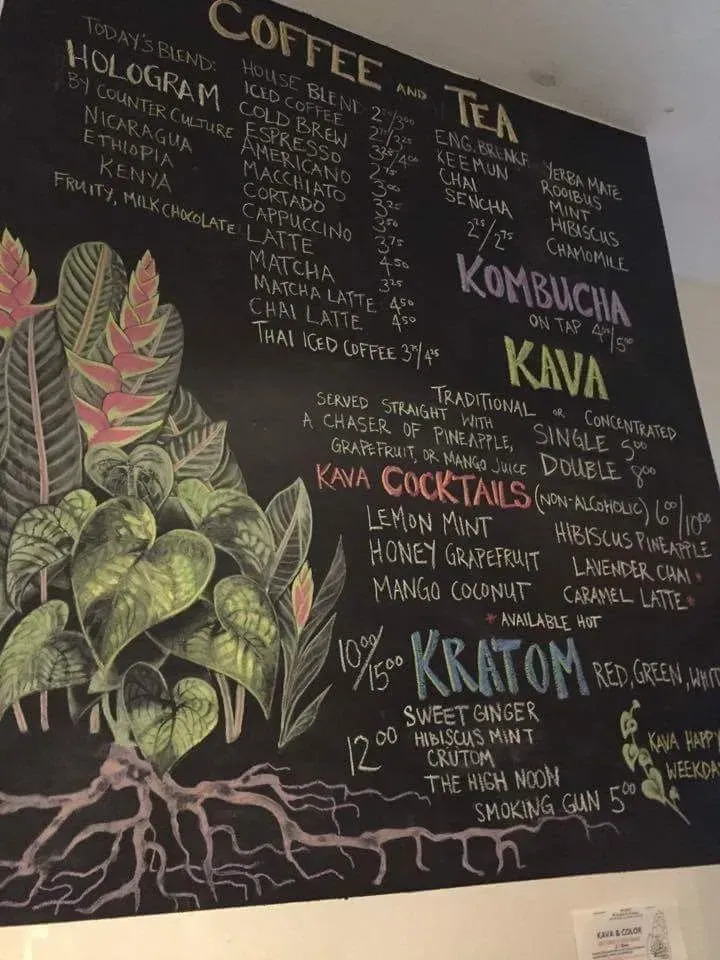 COFFEE AND TEA
TODAY'S BLEND:
HOLOGRAM
BY COUNTER CULTURE
NICARAGUA
ETHIOPIA
KENYA
FRUITY, MILK CHOCOLATE
HOUSE BLEND
ICED COFFEE
COLD BREW
ESPRESSO 3²⁵/4⁰⁰
AMERICANO
MACCHIATO 3⁰⁰
CORTADO 3²⁵
CAPPUCCINO 3⁵⁰
LATTE 3⁷⁵
MATCHA 4⁵⁰
MATCHA LATTE 3²⁵
CHAI LATTE 4⁵⁰
4⁵⁰
THAI ICED COFFEE 3⁷⁵/4²⁵
ENG. BREAKF.
KEEMUN
CHAI
SENCHA
2²⁵/2⁷⁵
YERBA MATE
ROOIBUS
MINT
HIBISCUS
CHAMOMILE
KOMBUCHA
ON TAP 4⁰⁰/5⁰⁰
KAVA
TRADITIONAL OR CONCENTRATED
SERVED STRAIGHT WITH
A CHASER OF PINEAPPLE,
GRAPEFRUIT, OR MANGO JUICE
SINGLE 5⁰⁰
DOUBLE 8⁰⁰
KAVA COCKTAILS (NON-ALCOHOLIC) 6⁰⁰/10⁰⁰
LEMON MINT
HONEY GRAPEFRUIT
MANGO COCONUT
HIBISCUS PINEAPPLE
LAVENDER CHAI *
CARAMEL LATTE *
* AVAILABLE HOT
10⁰⁰/15⁰⁰ KRATOM RED, GREEN, WHIT
12⁰⁰
SWEET GINGER
HIBISCUS MINT
CRUTOM
THE HIGH NOON
SMOKING GUN 5⁰⁰
KAVA HAPPY
WEEKDA
KAVA & COLOR